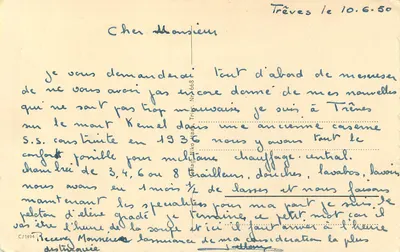 Trêves le 10.6.50
Cher Monsieur
je vous demanderai tout d'abord de m'excuser
de ne vous avoir pas encore donné de mes nouvelles
qui ne sont pas trop mauvaises je suis à Trêves
sur le mont Kemel dans une ancienne caserne
S.S. construite en 1936 nous y avons tout le
confort posible pour militaire chauffage central.
chambre de 3,4,6 ou 8 travailleurs, douches, lavabos, lavoirs
nous avons eu 1 mois ½ de classes et nous faisons
maintenant les specialités pour ma part je suis le
peloton d'élève gradé je termine ce petit mot car il
va être l'heure de la soupe et ici il faut arriver à l'heure
Recevez Monsieur l'assurance de ma considération la plus
distinguée